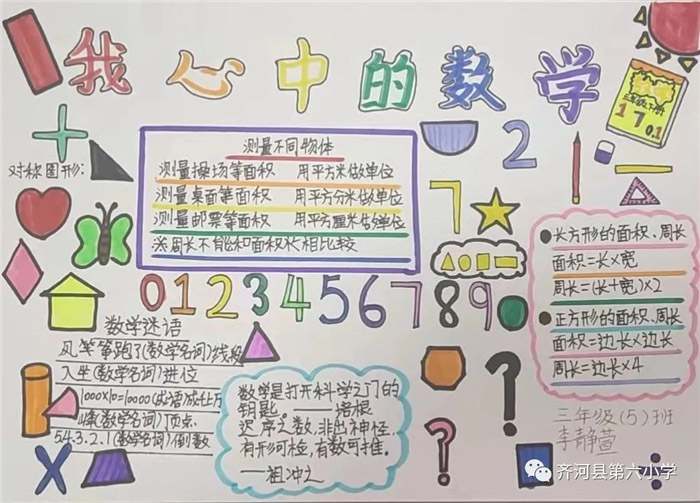 我心中的数学
三年级下册
1701
对称图形:
测量不同物体
测量操场等面积 用平方米做单位
测量桌面等面积 用平方分米做单位
测量邮票等面积 用平方厘米做单位
※周长不能和面积相比较
2
7
长方形的面积、周长
面积=长×宽
周长=(长+宽)×2
正方形的面积、周长
面积=边长×边长
周长=边长×4
0123456789
数学迷语
风筝跑了(数学名词)线段
入坐(数学名词)进位
1000×10=10000(成语)成仕万
峰(数学名词)顶点
5.4.3.2.1(数学名词)倒数
数学是打开科学之门的
钥匙。——培根
迟序之数,非出神怪,
有形可检,有数可推。
——祖冲之
三年级(5)班
李静萱
齐河县第六小学